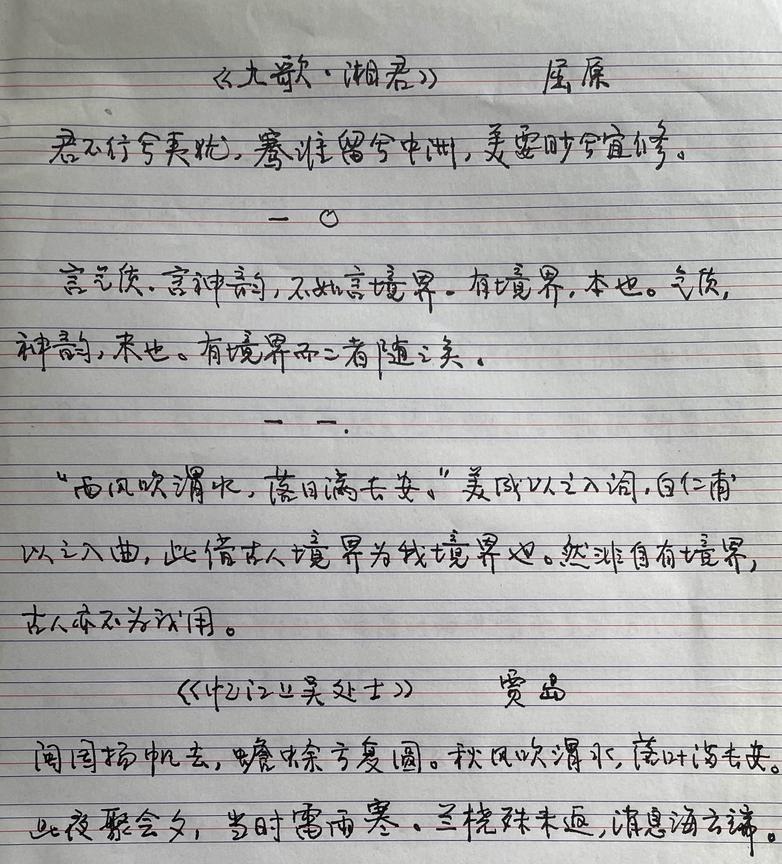 《九歌·湘君》 屈原
君不行兮夷犹，蹇谁留兮中洲，美要眇兮宜修。
一〇
言气质、言神韵，不如言境界。有境界，本也。气质，
神韵，末也。有境界而二者随之矣。
一一.
“西风吹渭水，落日满长安。”美成以之入词，白仁甫
以之入曲，此借古人境界为我境界也。然非自有境界，
古人亦不为我用。
《忆江上吴处士》 贾岛
闽国扬帆去，蟾蜍亏复圆。秋风吹渭水，落叶满长安。
此夜聚会夕，当时雷雨寒。兰桡殊未返，消息海云端。